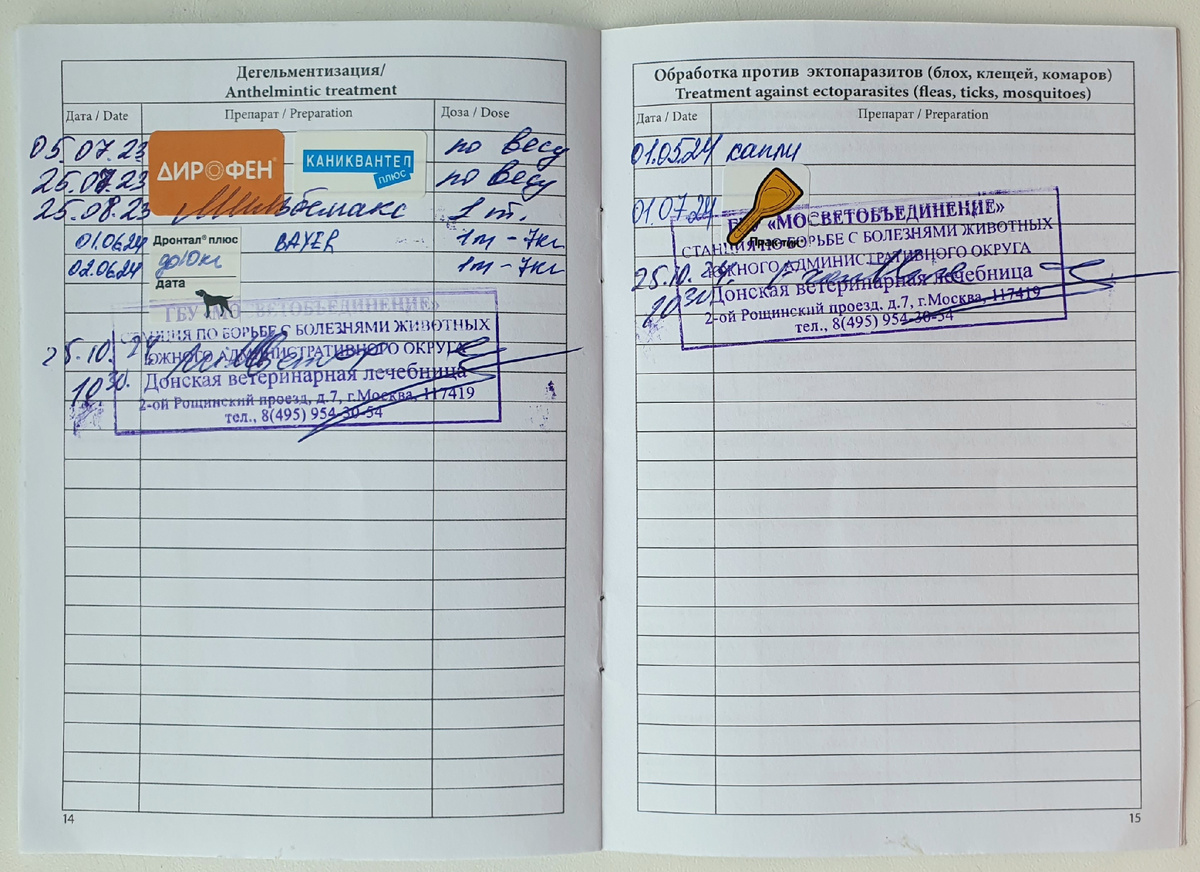 Дегельментизация/
Anthelmintic treatment
Дата / Date Препарат / Preparation Доза / Dose
05.07.23 ДИРОФЕН® КАНИКВАНТЕЛ ПЛЮС по весу
25.07.23 по весу
25.08.23 Мильбемакс 1 т.
01.0624 Дронтал® плюс BAYER 1т - 7кг
02.0624 до10кг 1т - 7кг
дата
ГБУ «МОСВЕТОБЪЕДИНЕНИЕ»
СТАНЦИЯ ПО БОРЬБЕ С БОЛЕЗНЯМИ ЖИВОТНЫХ
25.10.24 ЮЖНОГО АДМИНИСТРАТИВНОГО ОКРУГА
10 30. Донская ветеринарная лечебница
2-ой Рощинский проезд, д.7, г.Москва, 117419
тел., 8(495) 954-30-54
14
Обработка против эктопаразитов (блох, клещей, комаров)
Treatment against ectoparasites (fleas, ticks, mosquitoes)
Дата / Date Препарат / Preparation
01.0524 капли
01.0724 ГБУ «МОСВЕТОБЪЕДИНЕНИЕ»
СТАНЦИЯ ПО БОРЬБЕ С БОЛЕЗНЯМИ ЖИВОТНЫХ
25.10.24. ЮЖНОГО АДМИНИСТРАТИВНОГО ОКРУГА
Донская ветеринарная лечебница
2-ой Рощинский проезд, д.7, г.Москва, 117419
тел., 8(495) 954-30-54
15